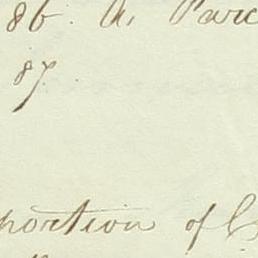 86. A. Parc
87
portion of